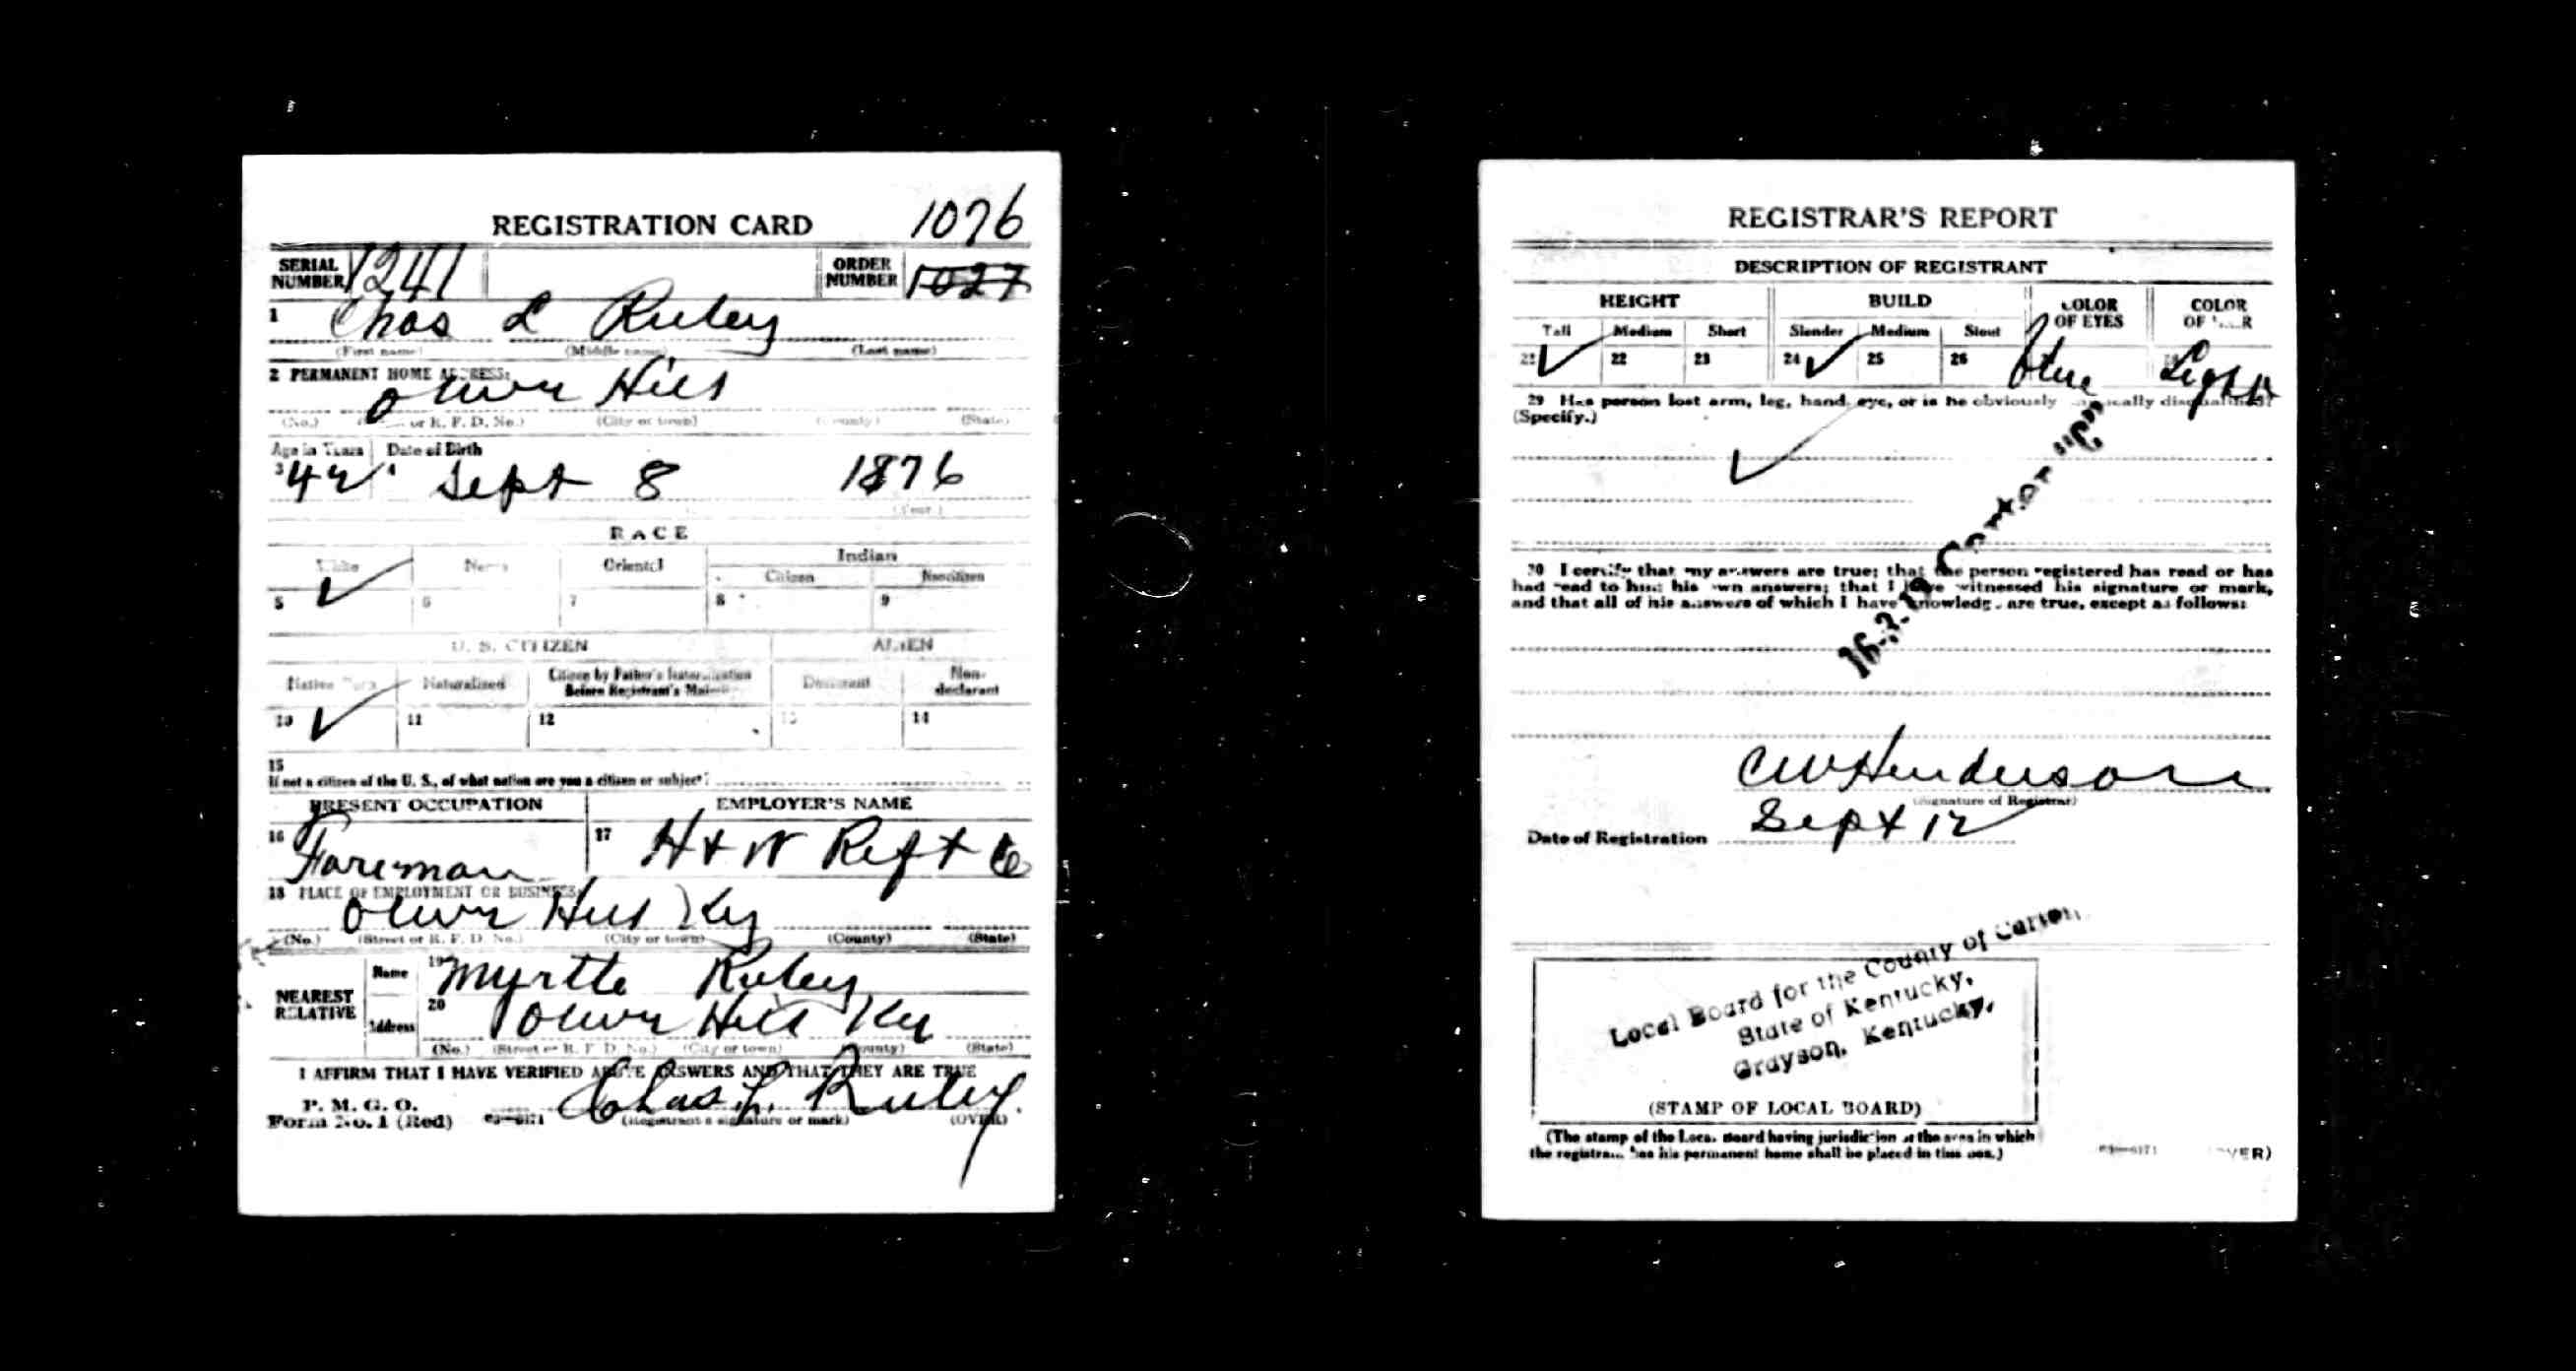 1076
REGISTRATION CARD
SERIAL NUMBER 1241 ORDER NUMBER 1027
1 Chas L Ruley
(First name) (Middle name) (Last name)
2 PERMANENT HOME ADDRESS:
Olive Hill
(No.) or R. F. D. No.) (City or town) (County) (State)
Age in Years Date of Birth
3 42 4 Sept 8 1876
(Year.)
RACE
White Negro Oriental Indian
Citizen Noncitizen
5 ✓ 6 7 8 9
U. S. CITIZEN ALIEN
Native Born Naturalized Citizen by Father's Naturalization Before Registrant's Majority Declarant Non-declarant
10 ✓ 11 12 13 14
15
If not a citizen of the U. S., of what nation are you a citizen or subject?
PRESENT OCCUPATION EMPLOYER'S NAME
16 Foreman 17 H + W Reft Co
18 PLACE OF EMPLOYMENT OR BUSINESS:
Olive Hill Ky
(No.) (Street or R. F. D. No.) (City or town) (County) (State)
NEAREST RELATIVE
Name 19 Myrtle Ruley
Address 20 Olive Hill Ky
(No.) (Street or R. F. D. No.) (City or town) (County) (State)
I AFFIRM THAT I HAVE VERIFIED ABOVE ANSWERS AND THAT THEY ARE TRUE
P. M. G. O.
Form No. 1 (Red) 03—6171 Chas. L. Ruley
(Registrant's signature or mark) (OVER)
REGISTRAR'S REPORT
DESCRIPTION OF REGISTRANT
HEIGHT BUILD COLOR OF EYES COLOR OF HAIR
Tall Medium Short Slender Medium Stout
21 ✓ 22 23 24 ✓ 25 26 Blue Light
29 Has person lost arm, leg, hand, eye, or is he obviously physically disqualified?
(Specify.)
✓
Carter "C"
30 I certify that my answers are true; that the person registered has read or has
had read to him his own answers; that I have witnessed his signature or mark,
and that all of his answers of which I have knowledge are true, except as follows:
C W Henderson
(Signature of Registrar)
Date of Registration Sept 12
Local Board for the County of Carter,
State of Kentucky,
Grayson, Kentucky.
(STAMP OF LOCAL BOARD)
(The stamp of the Local Board having jurisdiction of the area in which
the registrant has his permanent home shall be placed in this box.)
03—6171 (OVER)